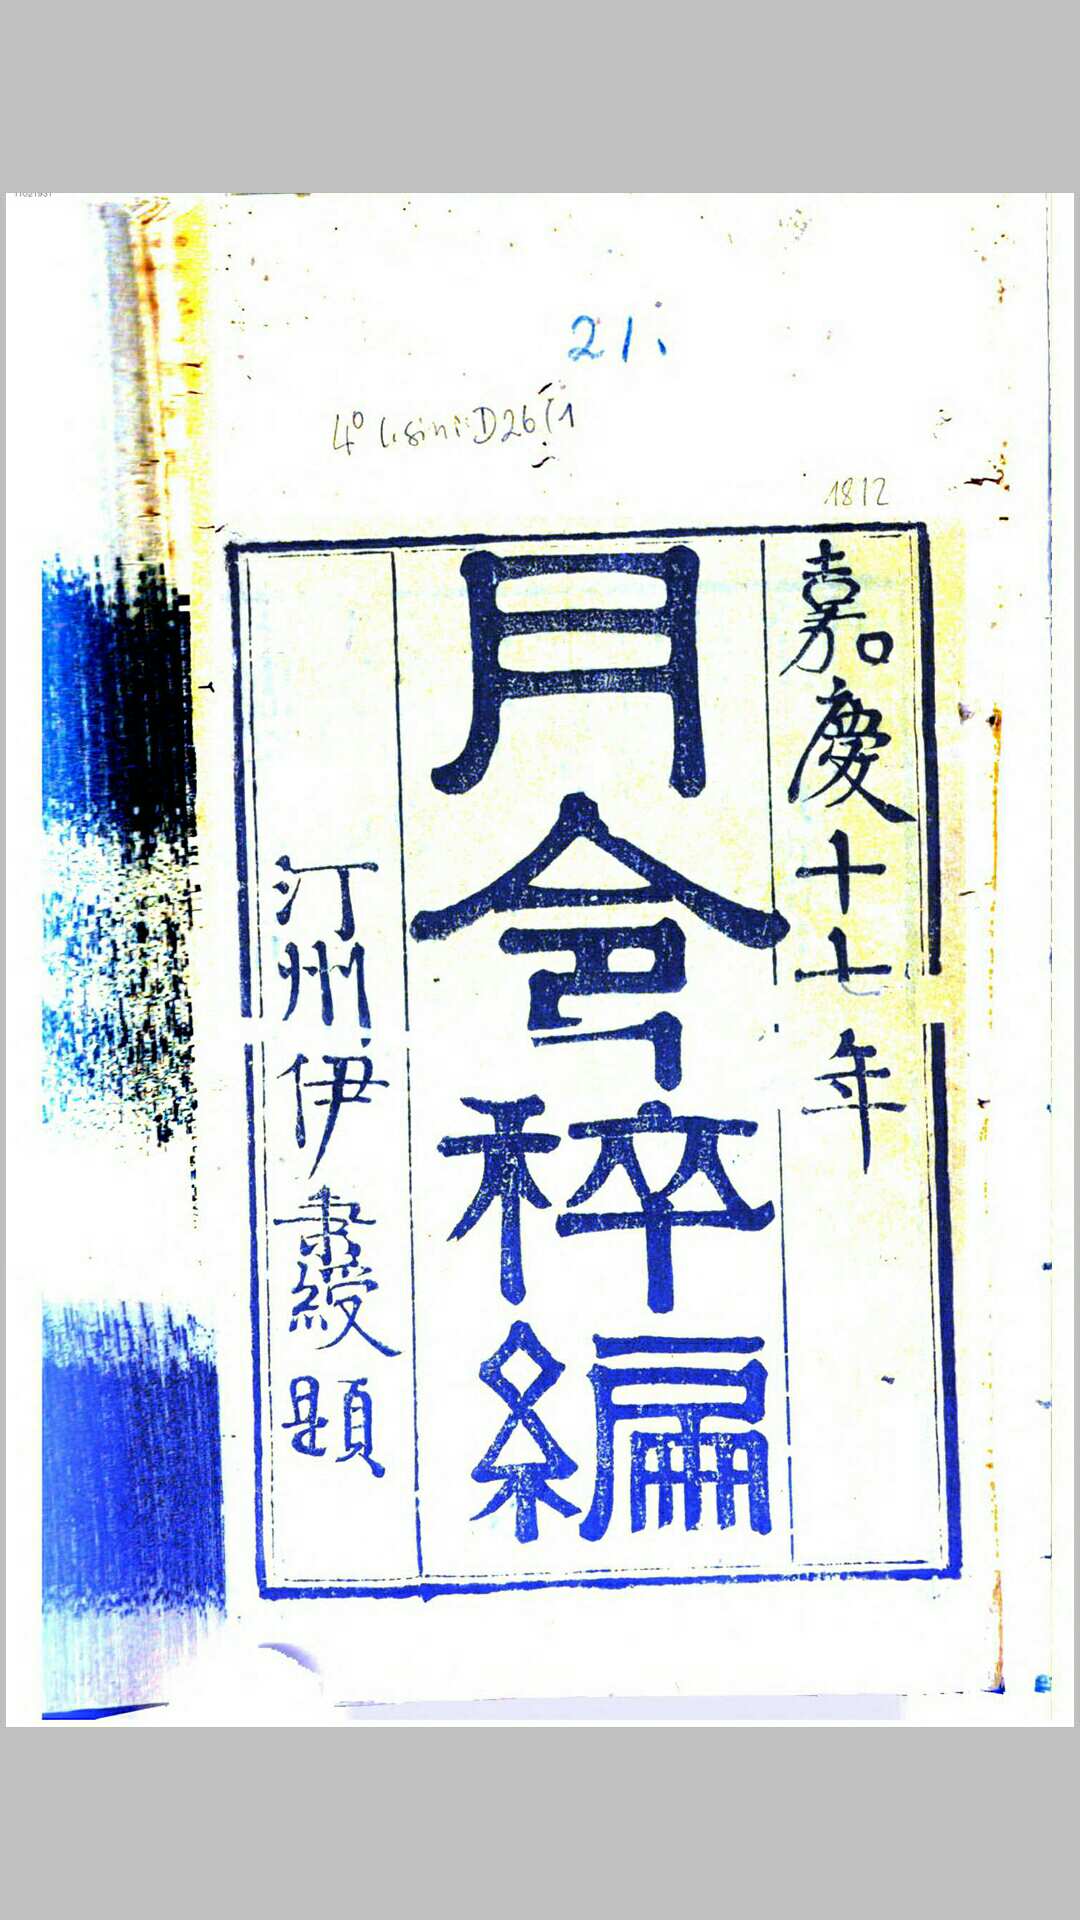 21.
4° L.sin. D 26(1
1812
嘉慶十七年
月令稡編
汀州伊秉綬題